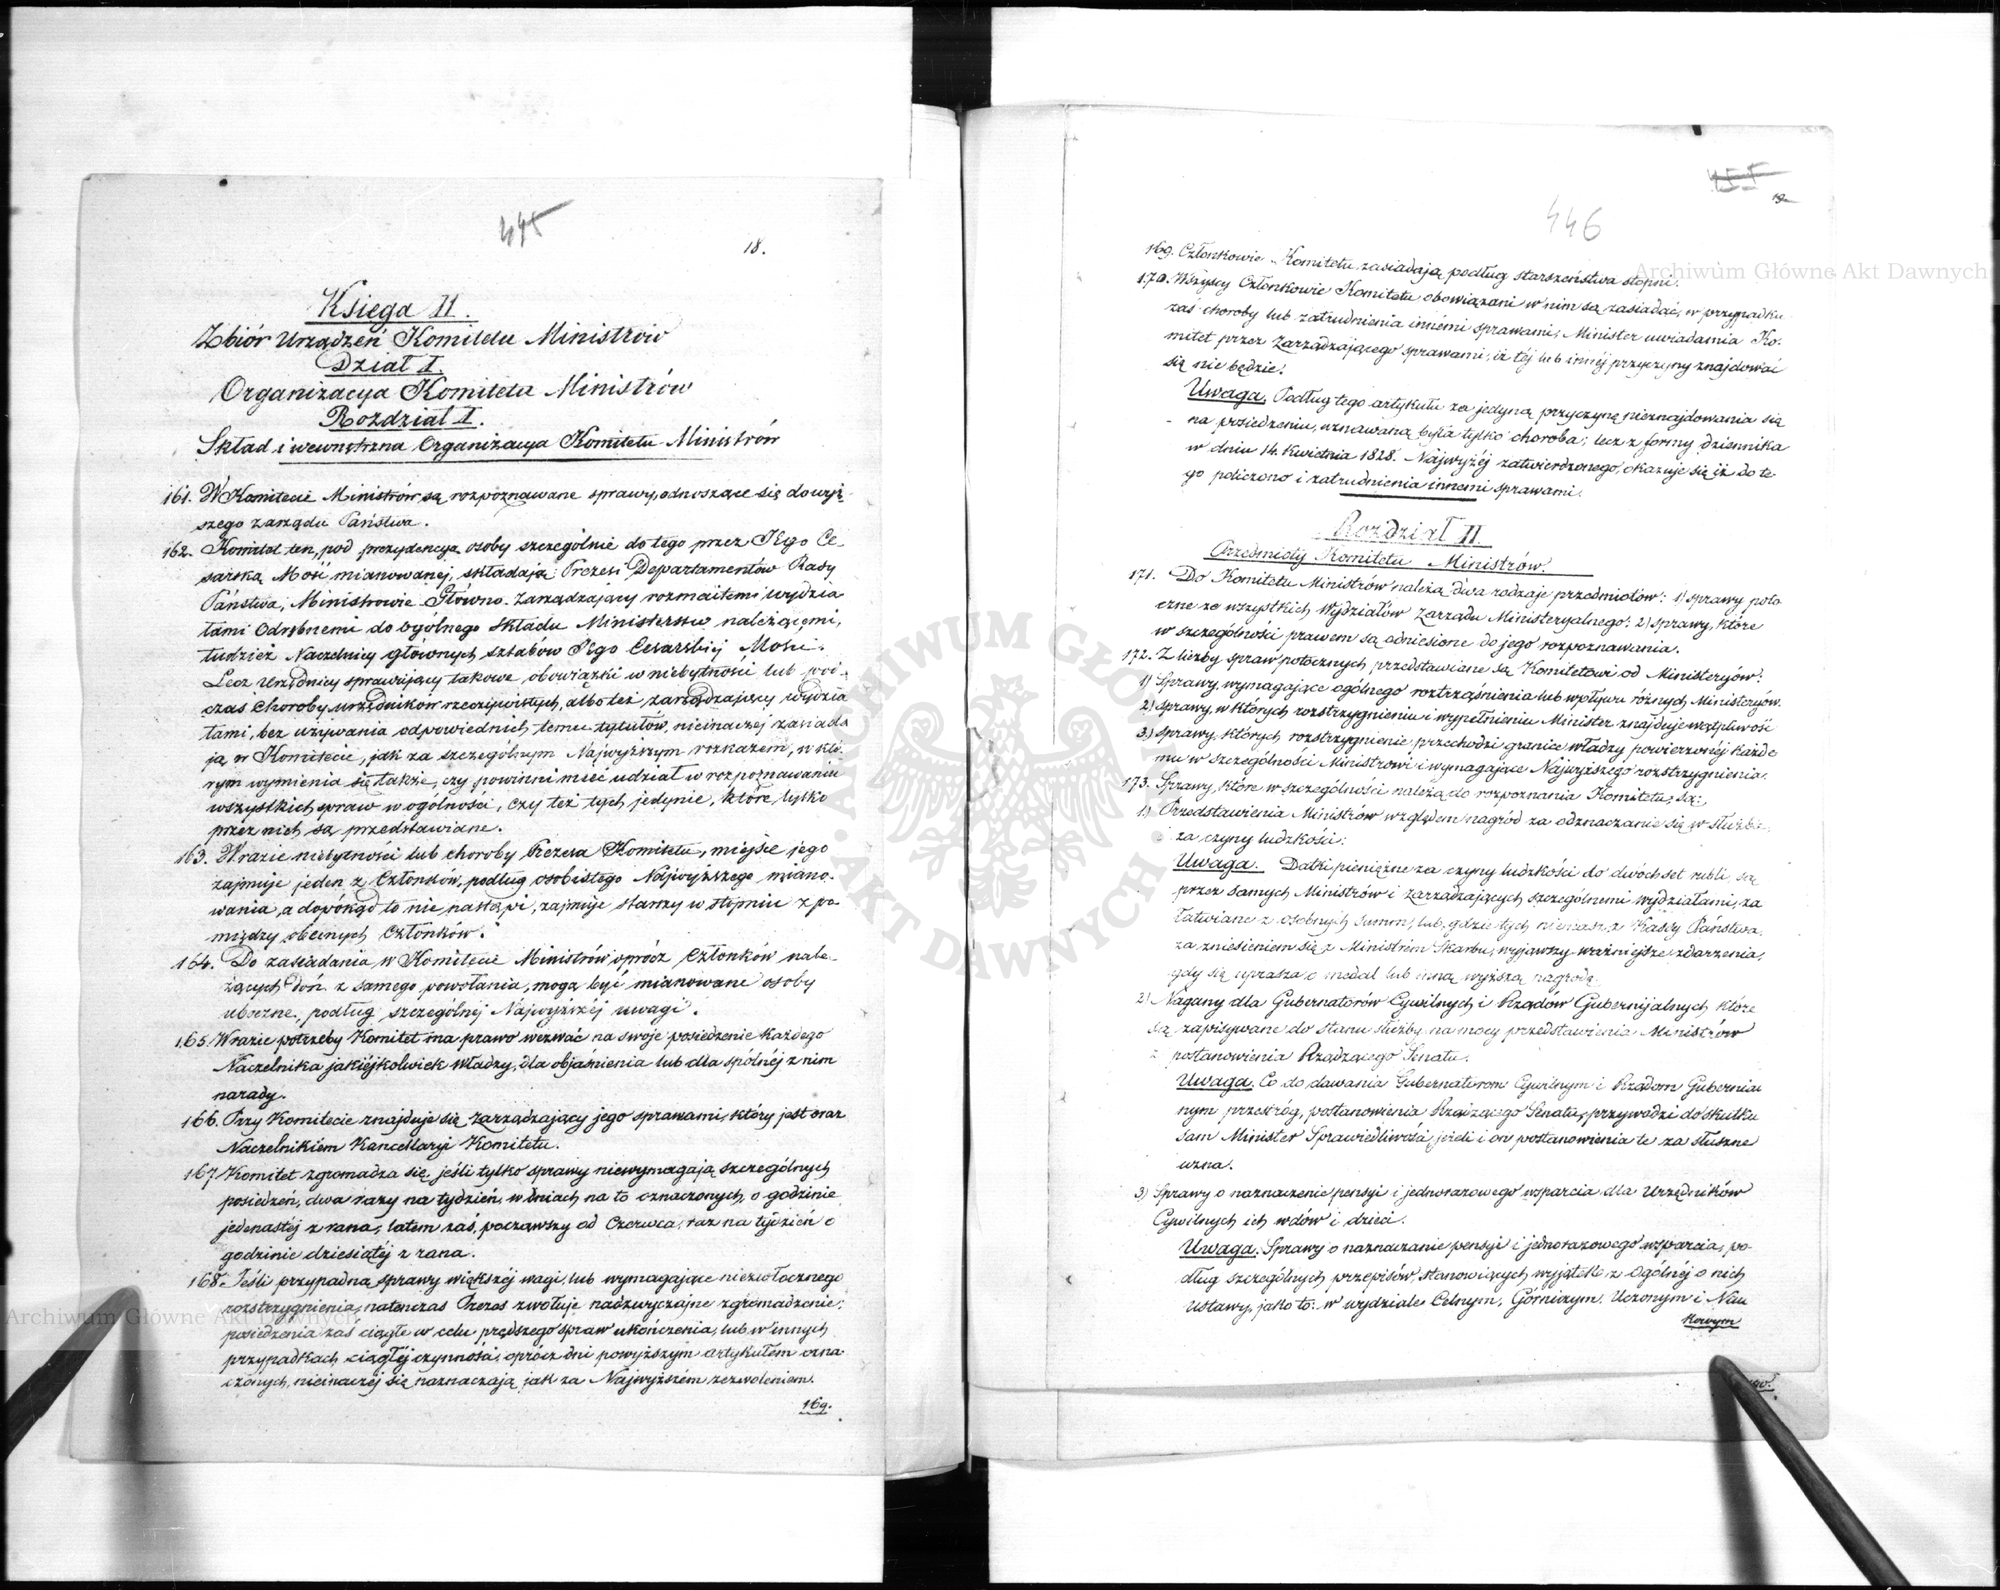 445
18.
Księga II.
Zbiór Urządzeń Komitetu Ministrów
Dział I.
Organizacya Komitetu Ministrów
Rozdział I.
Skład i wewnętrzna Organizacya Komitetu Ministrów
161. W Komitecie Ministrów są rozpoznawane sprawy, odnoszące się do wyż
szego zarządu Państwa.
162. Komitet ten, pod prezydencyą osoby szczególnie do tego przez Jego Ce-
sarską Mość mianowanej, składają: Prezesi Departamentów Rady
Państwa, Ministrowie Głowno-Zarządzający rozmaitemi wydzia
łami odrębnemi do ogólnego składu Ministerstw należącemi,
tudzież Naczelnicy głównych sztabów Jego Cesarskiej Mości.
Lecz Urzędnicy sprawujący takowe obowiązki w niebytności lub pod-
czas choroby urzędników rzeczywistych, albo też zarządzający wydzia
łami, bez używania odpowiednich temu tytułów, nieinaczej zasiada
ją w Komitecie, jak za szczególnym Najwyższym rozkazem, w któ-
rym wymienia się także, czy powinni mieć udział w rozpoznawaniu
wszystkich spraw w ogólności, czy też tych jedynie, które tylko
przez nich są przedstawiane.
163. W razie niebytności lub choroby Prezesa Komitetu, miejsce jego
zajmuje jeden z Członków, podług osobistego Najwyższego miano-
wania, a dopókąd to nie nastąpi, zajmuje starszy w stopniu z po
między obecnych Członków.
164. Do zasiadania w Komitecie Ministrów oprócz Członków nale-
żących doń z samego powołania, mogą być mianowane osoby
uboczne, podług szczególnej Najwyższej uwagi.
165. W razie potrzeby Komitet ma prawo wezwać na swoje posiedzenie każdego
Naczelnika jakiejkolwiek władzy, dla objaśnienia lub dla spólnej z nim
narady.
166. Przy Komitecie znajduje się Zarządzający jego sprawami, który jest oraz
Naczelnikiem Kancellaryi Komitetu.
167 Komitet zgromadza się, jeśli tylko sprawy niewymagają szczególnych
posiedzeń, dwa razy na tydzień, w dniach na to oznaczonych, o godzinie
jedenastej z rana, latem zaś, począwszy od Czerwca, raz na tydzień o
godzinie dziesiątej z rana.
168. Jeśli przypadną sprawy większej wagi, lub wymagające niezwłocznego
rozstrzygnienia, natenczas Prezes zwołuje nadzwyczajne zgromadzenie;
posiedzenia zaś ciągłe w celu prędszego spraw ukończenia, lub w innych
przypadkach ciągłej czynności, oprócz dni powyższym artykułem ozna-
czonych, nieinaczej się naznaczają jak za Najwyższém zezwoleniem.
169.
19
446
169. Członkowie Komitetu zasiadają podług starszeństwa stopni.
170. Wszyscy Członkowie Komitetu obowiązani w nim są zasiadać, w przypadku
zaś choroby lub zatrudnienia innémi sprawami, Minister uwiadamia Ko-
mitet przez Zarządzającego sprawami, iż tej lub innéj przyczyny znajdować
się nie będzie.
Uwaga. Podług tego artykułu za jedyną przyczynę nieznajdowania się
na posiedzeniu, uznawaną była tylko choroba; lecz z formy dziennika
w dniu 14. Kwietnia 1828. Najwyżej zatwierdzonego, okazuje się iż do te
go policzono i zatrudnienia innemi sprawami.
Rozdział II.
Przedmioty Komitetu Ministrów.
171. Do Komitetu Ministrów należą dwa rodzaje przedmiotów: 1) sprawy poto
czne ze wszystkich Wydziałów Zarządu Ministeryalnego: 2) sprawy, które
w szczególności prawem są odniesione do jego rozpoznawania.
172. Z liczby spraw potocznych przedstawiane są Komitetowi od Ministeryów:
1) Sprawy, wymagające ogólnego roztrząśnienia lub wpływu różnych Ministeryów.
2) Sprawy, w których rozstrzygnieniu i wypełnieniu Minister znajduje wątpliwość
3.) Sprawy, których rozstrzygnienie, przechodzi granice władzy powierzonéj każde
mu w szczególności Ministrowi i wymagające Najwyższego rozstrzygnienia.
173. Sprawy, które w szczególności należą do rozpoznania Komitetu, są:
1.) Przedstawienia Ministrów względem nagród za odznaczanie się w służbie
za czyny ludzkości:
Uwaga. Datki pieniężne za czyny ludzkości do dwóchset rubli, są
przez samych Ministrów i Zarządzających szczególnemi wydziałami, za
łatwiane z osobnych summ, lub, gdzie tych niemasz, z Kassy Państwa,
za zniesieniem się z Ministrem Skarbu, wyjąwszy ważniejsze zdarzenia,
gdy się uprasza o medal lub inną wyższą nagrodę.
2) Nagany dla Gubernatorów Cywilnych i Rządów Gubernijalnych, które
są zapisywane do stanu służby, na mocy przedstawienia Ministrów
z postanowienia Rządzącego Senatu.
Uwaga. Co do dawania Gubernatorom Cywilnym i Rządom Gubernial
nym przestróg, postanowienia Rządzącego Senatu, przywodzi do skutku
sam Minister Sprawiedliwości, jeżeli i on postanowienia te za słuszne
uzna.
3) Sprawy o naznaczenie pensyi i jednorazowego wsparcia dla Urzędników
Cywilnych ich wdów i dzieci.
Uwaga. Sprawy o naznaczanie pensyi i jednorazowego wsparcia, po-
dług szczególnych przepisów, stanowiących wyjątek z ogólnéj o nich
ustawy, jako to: w wydziale Celnym, Górniczym, Uczonym i Nau
kowym
Archiwum Główne Akt Dawnych
Archiwum Główne Akt Dawnych
ARCHIWUM GŁÓWNE AKT DAWNYCH